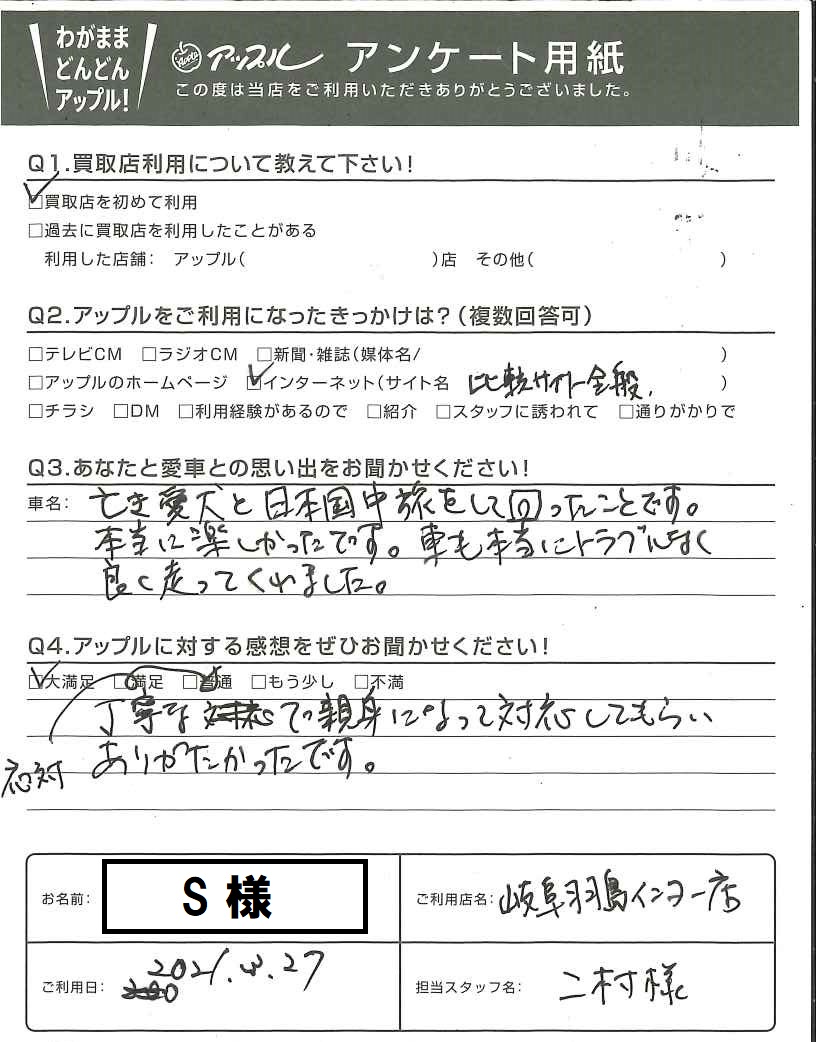 わがまま
どんどん
アップル!
Apple アップル アンケート用紙
この度は当店をご利用いただきありがとうございました。
Q1.買取店利用について教えて下さい!
☑買取店を初めて利用
□過去に買取店を利用したことがある
利用した店舗: アップル( )店 その他( )
Q2.アップルをご利用になったきっかけは?(複数回答可)
□テレビCM □ラジオCM □新聞・雑誌(媒体名/ )
□アップルのホームページ ☑インターネット(サイト名 比較サイト全般, )
□チラシ □DM □利用経験があるので □紹介 □スタッフに誘われて □通りがかりで
Q3.あなたと愛車との思い出をお聞かせください!
車名: 亡き愛犬と日本国中旅をして回ったことです。
本当に楽しかったです。車も本当にトラブルなく
良く走ってくれました。
Q4.アップルに対する感想をぜひお聞かせください!
☑大満足 □満足 □普通 □もう少し □不満
丁寧な対応で親身になって対応してもらい
応対 ありがたかったです。
お名前: S 様 ご利用店名: 岐阜羽島インター店
ご利用日: 2021. 27 担当スタッフ名: 二村様